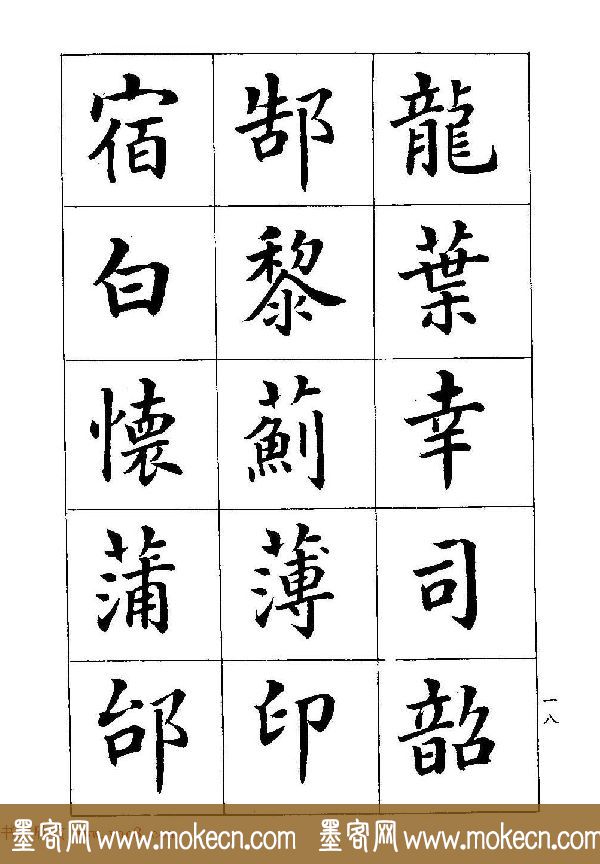 龍葉幸司韶
郜黎薊薄印
宿白懐蒲邰
一八
墨客网 www.mokecn.com 墨客网 www.mokecn.com